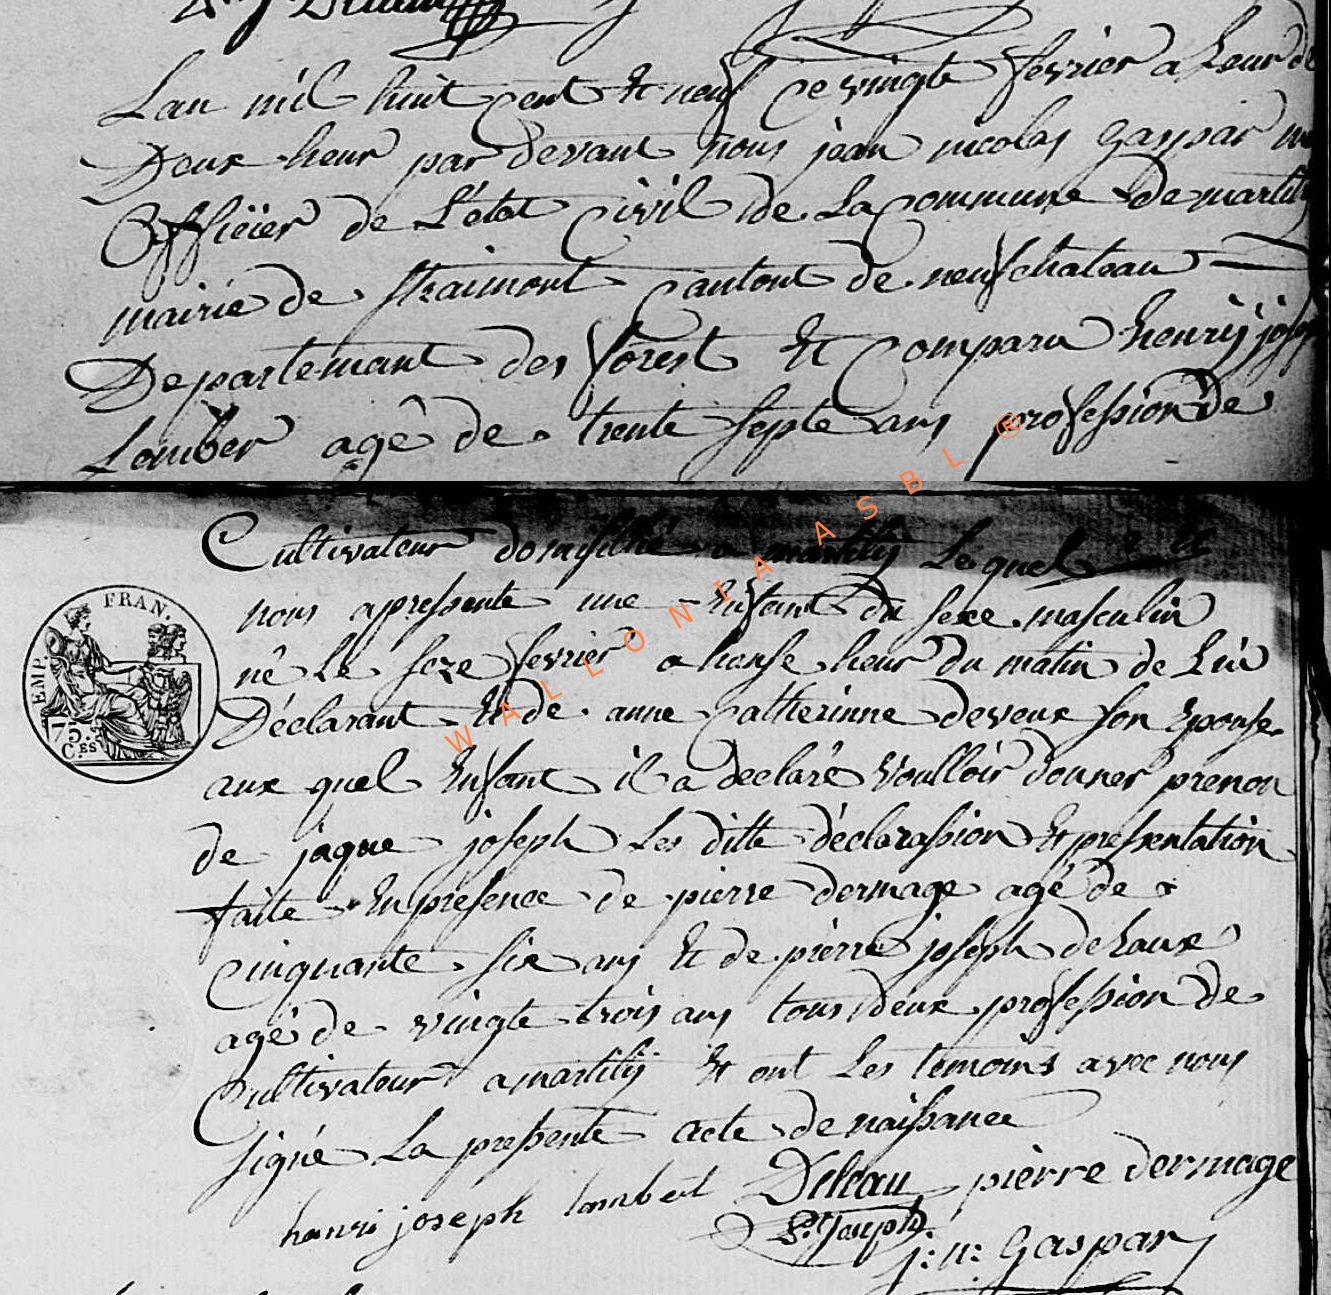 Lan mil huit cent et neuf ce vingte fevrier a heur de
Deux heur par devant nous jean nicolas gaspar
Officiier de L'état Civil de La Commune de martilly
mairie de straimont cantont de neufchateau
Departemant des forest et Comparu henrij joseph
Lomber agê de trente septe ans profession de
Cultivateur domisilié a martilij Lequel
nous apressente une enfant du sexe masculin
né Le seze fevrier a honse heur du matin de Lui
Déclarant et de anne Catterinne deveux son Epouse
aux quel enfant il a declaré voulloir donner prenon
de jaque joseph Les ditte déclarassion et pressentation
faite en presence de pierre dermage agé de
cinquante six ans et de pierre joseph deLaux
agé de vingte trois ans tous deux profession de
Cultivateur a martilij et ont Les temoins avec nous
signé La pressente acte de naissance
henri joseph lambert Deleau pierre dermage
P. Joseph
j: n: Gaspar
FRAN.
EMP.
75.
C.ES
WALLONIA ASBL ®